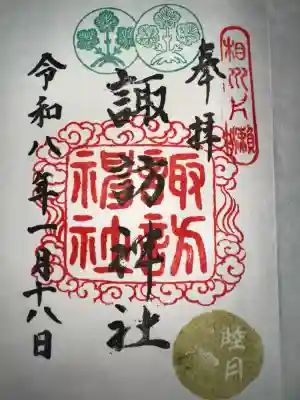 相州片瀬
奉拝
諏訪神社
諏訪神社
令和八年一月十八日
睦月